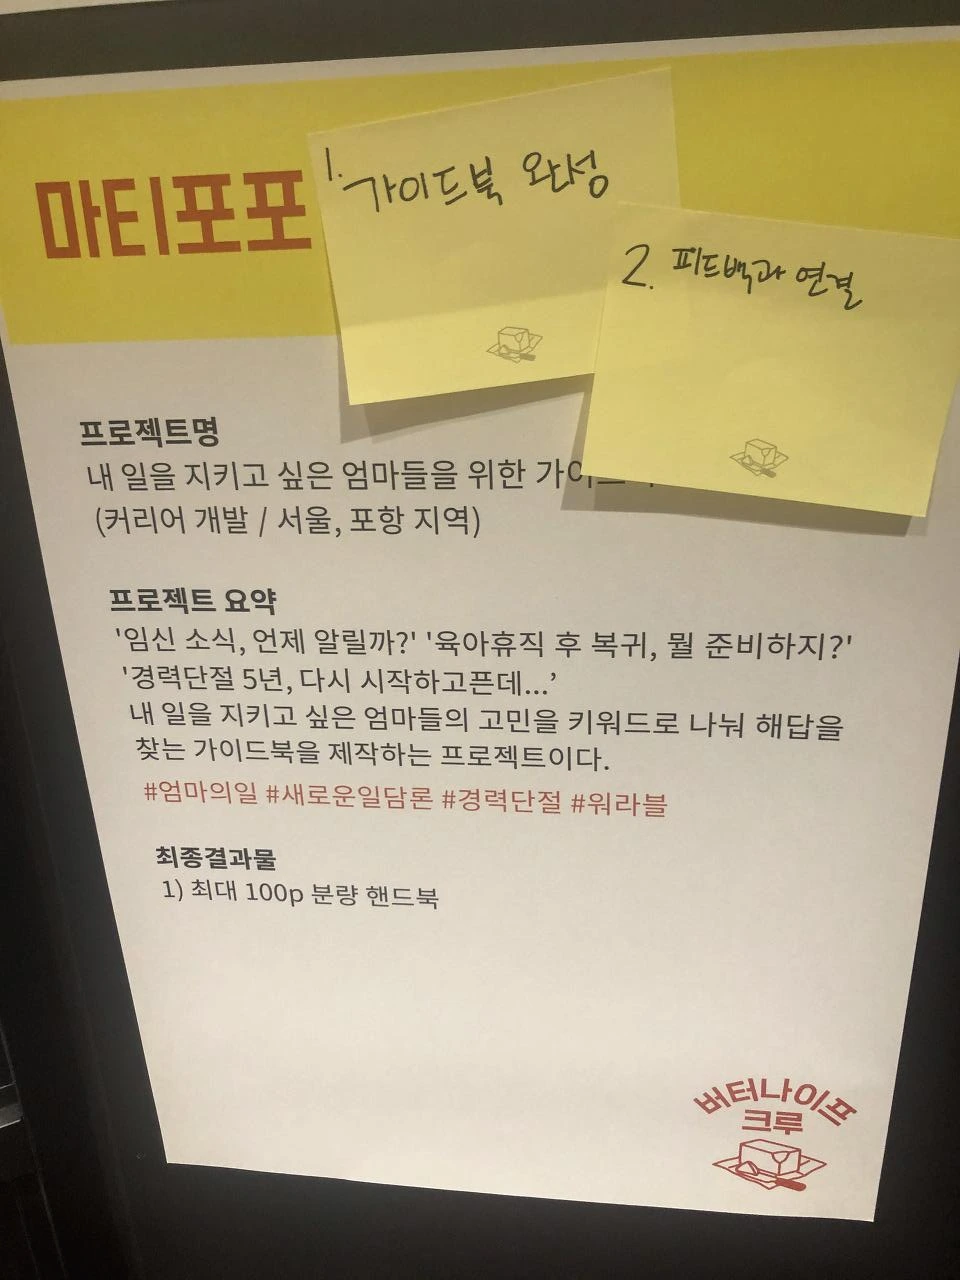 마티포포
1. 가이드북 완성
2. 피드백과 연결
프로젝트명
내 일을 지키고 싶은 엄마들을 위한
(커리어 개발 / 서울, 포항 지역)
프로젝트 요약
'임신 소식, 언제 알릴까?' '육아휴직 후 복귀, 뭘 준비하지?'
'경력단절 5년, 다시 시작하고픈데...'
내 일을 지키고 싶은 엄마들의 고민을 키워드로 나눠 해답을
찾는 가이드북을 제작하는 프로젝트이다.
#엄마의일 #새로운일담론 #경력단절 #워라블
최종결과물
1) 최대 100p 분량 핸드북
버터나이프
크루